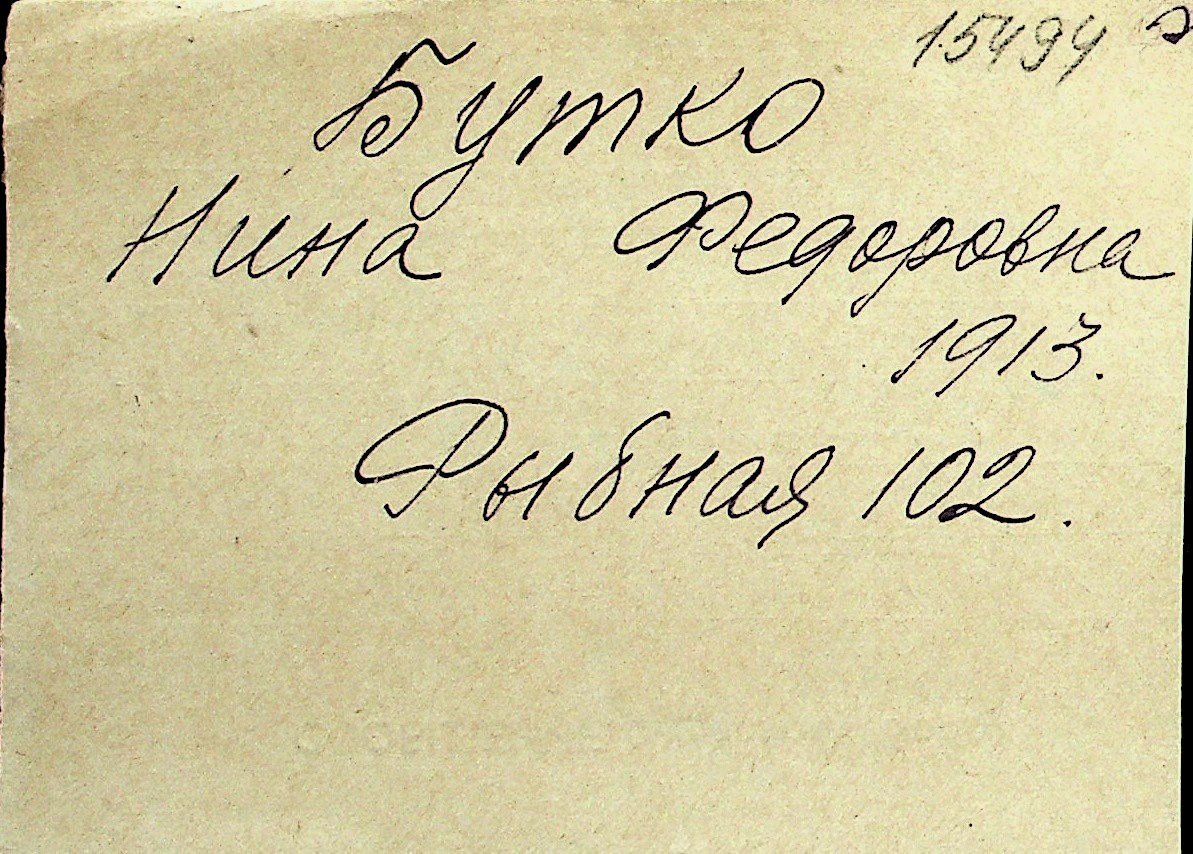 15494
Бутко
Нина Федоровна
1913.
Рыбная 102.